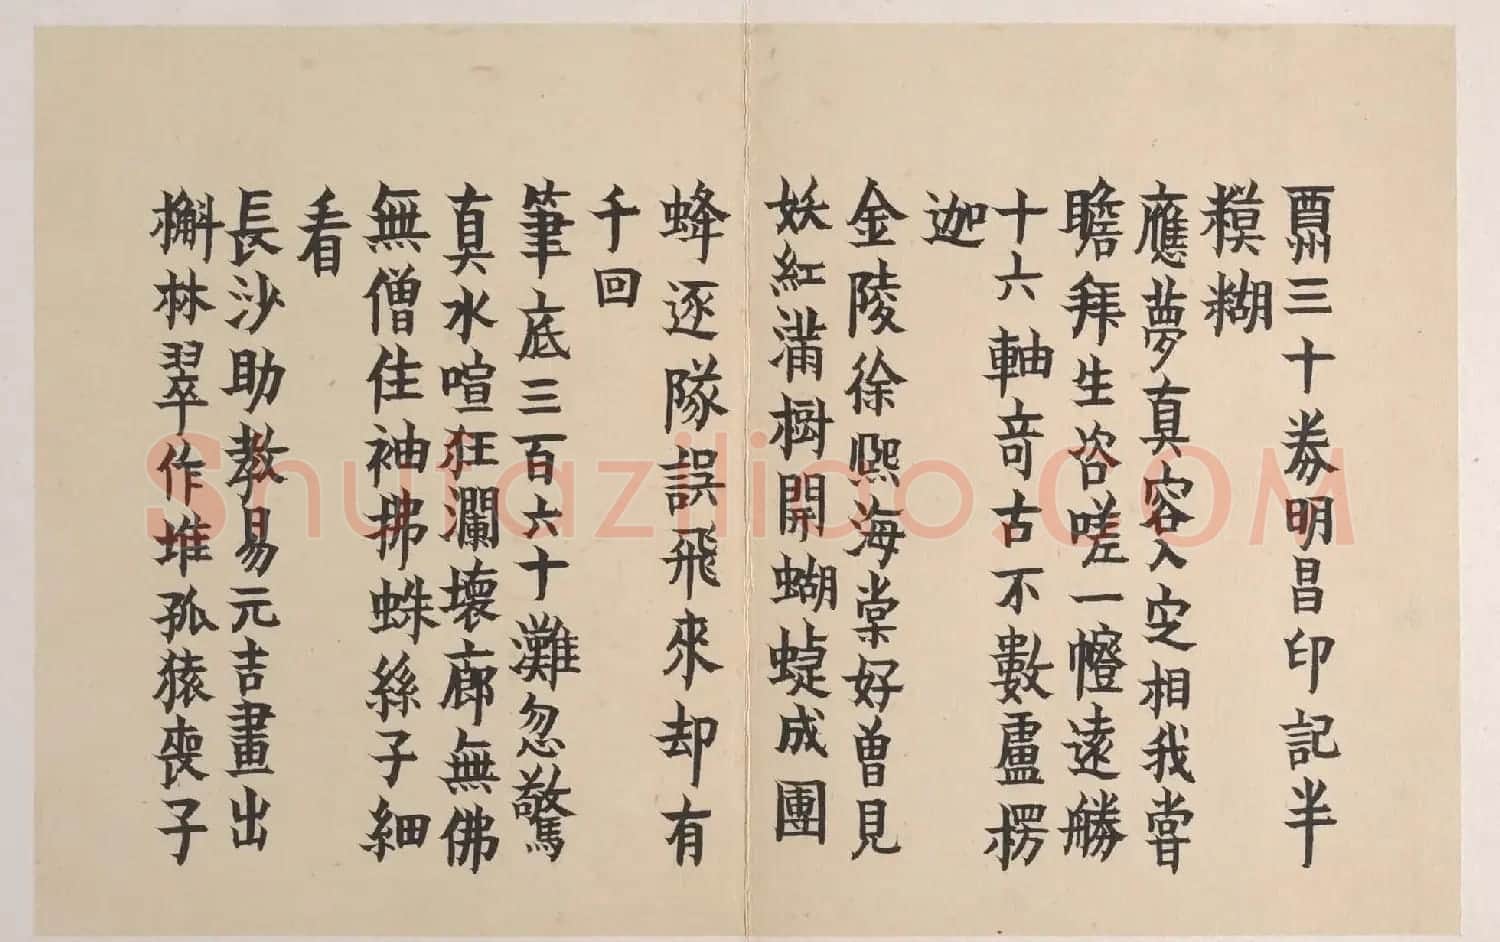 賈州三十券明昌印記半
糢糊
應夢真容入定相我嘗
瞻拜生咨嗟一幢遠勝
十六軸竒古不數盧楞
迦
金陵徐熙海棠好曾見
妖紅滿樹開蝴蜨成團
蜂逐隊誤飛來却有
千回
筆底三百六十灘忽驚
真水喧狂瀾壞廊無佛
無僧住袖拂蛛絲子細
看
長沙助教易元吉畫出
槲林翠作堆孤猿喪子
Shufaziliao.COM